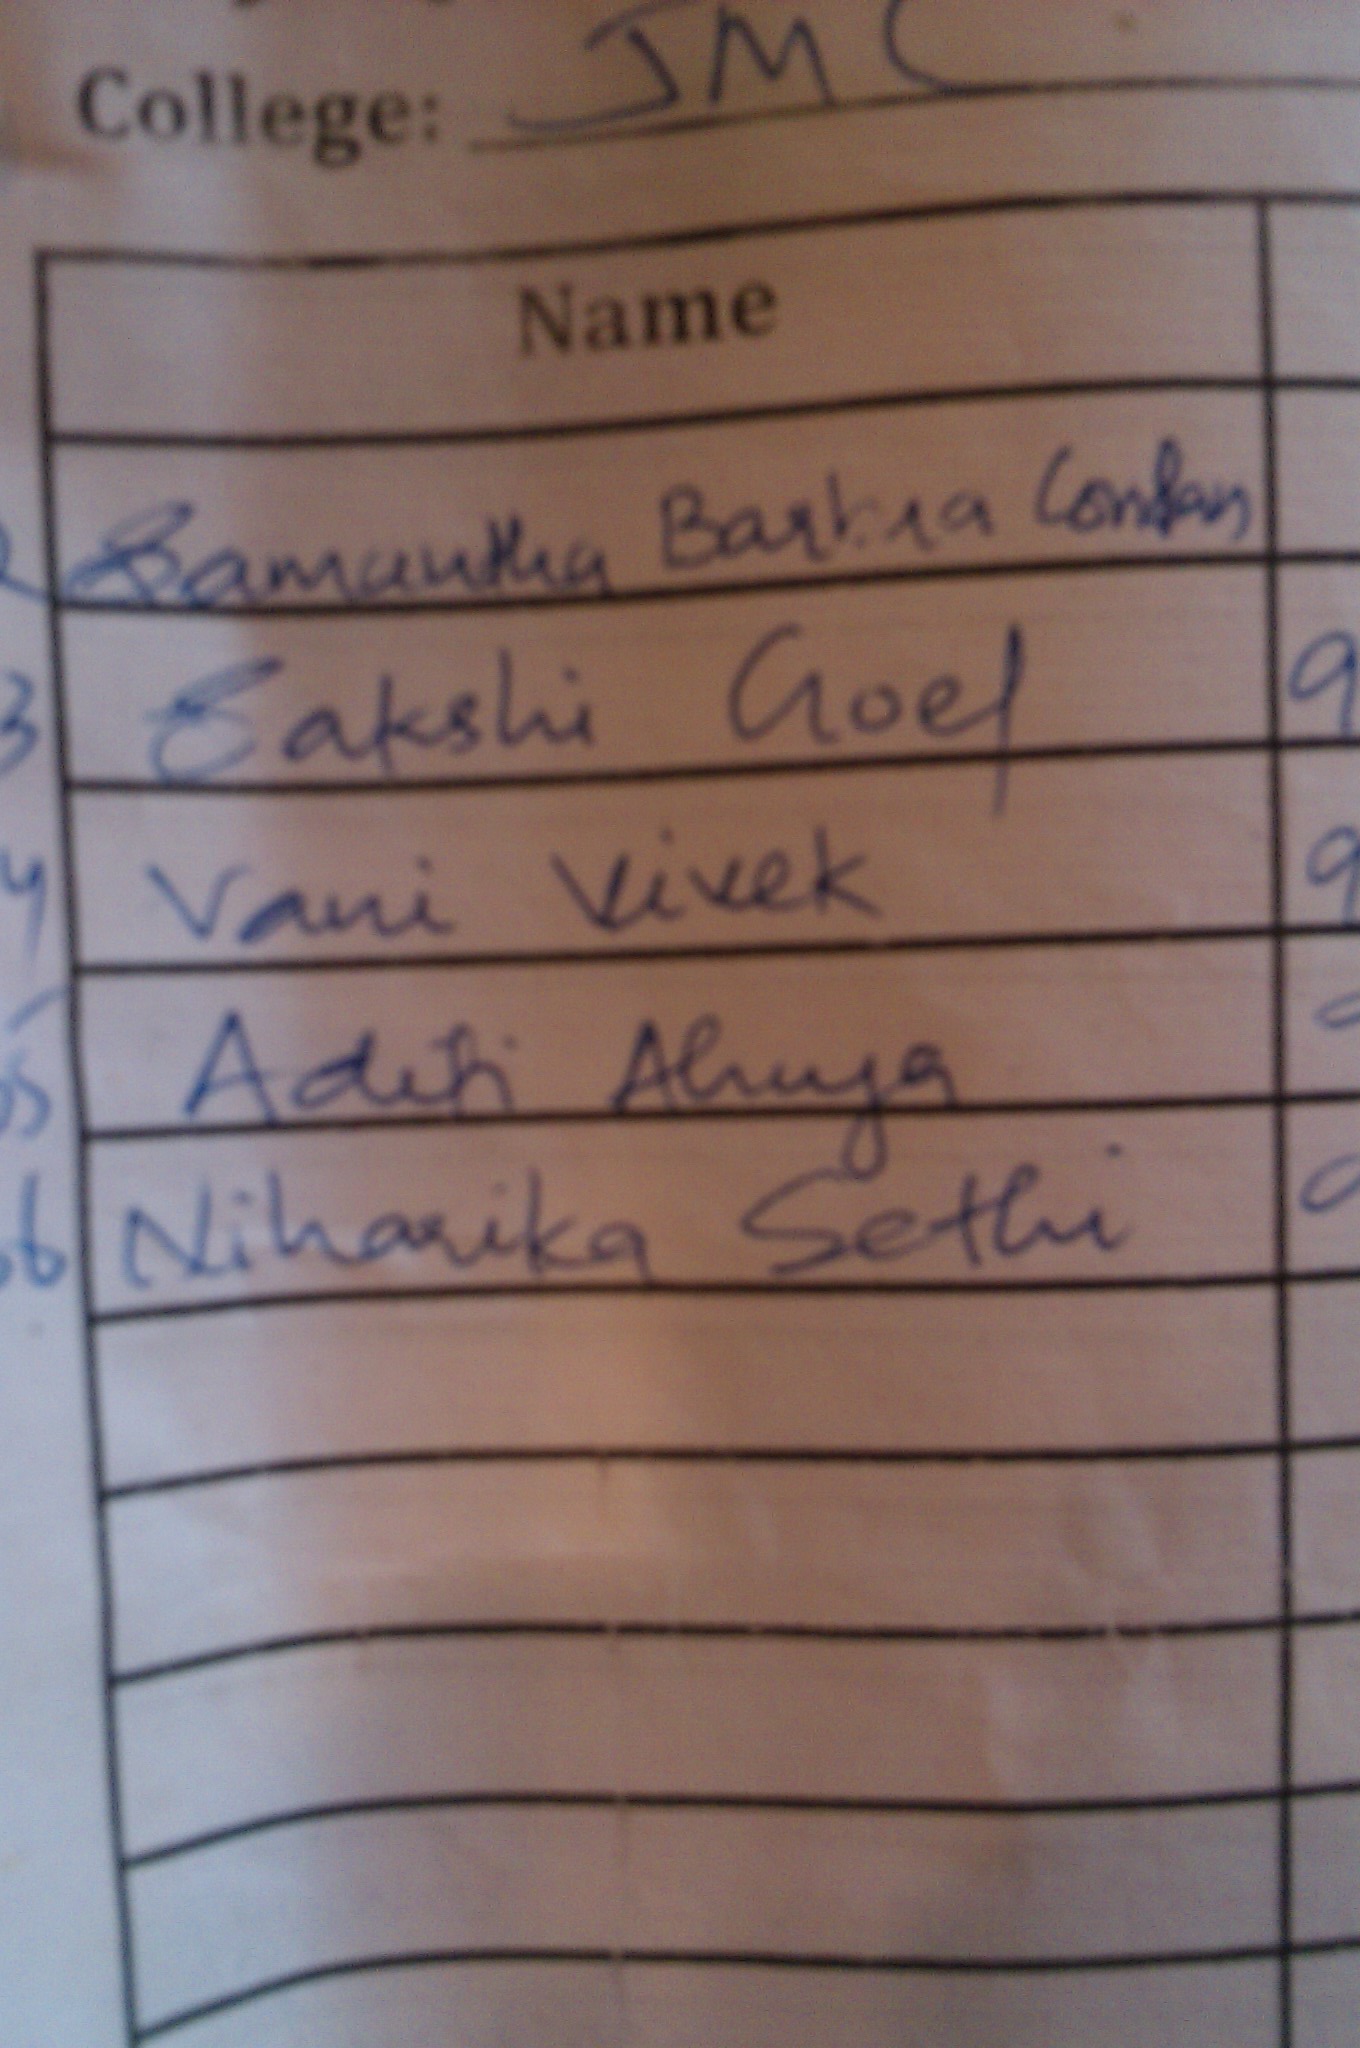 College: JMC
Name
Samantha
3 Sakshi Goel 9
4 Vani Vivek 9
05 Aditi Ahuja
06 Niharika Sethi